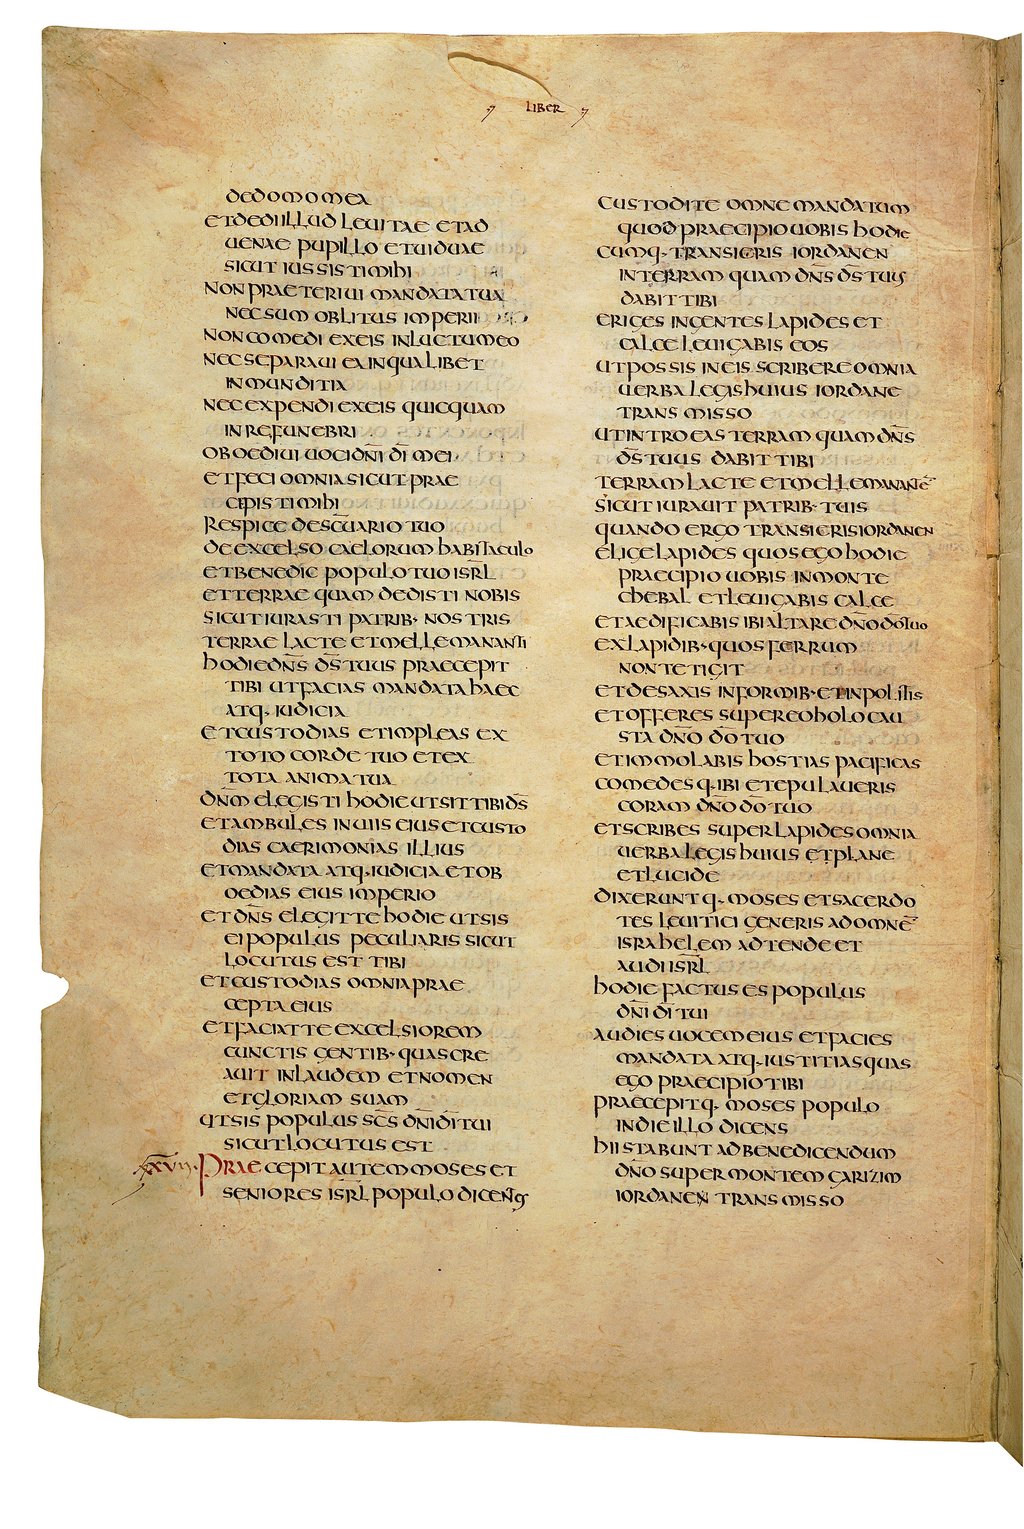 LIBER
DEDOMOMEA
ETDEDIILLUD LEUITAE ETAD
UENAE PUPILLO ETUIDUAE
SICUT IUSSISTIMIHI
NONPRAETERIUI MANDATATUA
NECSUM OBLITUS IMPERII
NONCOMEDI EXEIS INLUCTUMEO
NECSEPARAUI EAINQUALIBET
INMUNDITIA
NECEXPENDI EXEIS QUICQUAM
INREFUNEBRI
OBOEDIUI UOCIDN̄I D̄I MEI
ETFECI OMNIASICUT PRAE
CEPISTIMIHI
RESPICE DESC̄UARIO TUO
DEEXCELSO CAELORUM HABITACULO
ETBENEDIC POPULOTUO ISR̄L
ETTERRAE QUAM DEDISTI NOBIS
SICUTIURASTI PATRIB· NOSTRIS
TERRAE LACTE ETMELLEMANANTI
HODIEDN̄S D̄STUUS PRAECEPIT
TIBI UTFACIAS MANDATAHAEC
ATQ· IUDICIA
ETCUSTODIAS ETIMPLEAS EX
TOTO CORDE TUO ETEX
TOTA ANIMATUA
DN̄M ELEGISTI HODIEUTSITTIBID̄S
ETAMBULES INUIIS EIUSETCUSTO
DIAS CAERIMONIAS ILLIUS
ETMANDATA ATQ·IUDICIA ETOB
OEDIAS EIUS IMPERIO
ETDN̄S ELEGITTE HODIE UTSIS
EIPOPULUS PECULIARIS SICUT
LOCUTUS EST TIBI
ETCUSTODIAS OMNIAPRAE
CEPTAEIUS
ETFACIATTE EXCELSIOREM
CUNCTIS GENTIB·QUASCRE
AUIT INLAUDEM ETNOMEN
ETGLORIAM SUAM
UTSIS POPULUS SC̄S DN̄ID̄ITUI
SICUTLOCUTUS EST
XXVII·PRAECEPIT AUTEMMOSES ET
SENIORES ISR̄L POPULO DICENS
CUSTODITE OMNEMANDATUM
QUOD PRAECIPIOUOBIS HODIE
CUMQ·TRANSIERIS IORDANEN
INTERRAM QUAM DN̄S D̄STUUS
DABITTIBI
ERIGES INGENTES LAPIDES ET
CALCE LEUIGABIS EOS
UTPOSSIS INEIS SCRIBERE OMNIA
UERBA LEGISHUIUS IORDANE
TRANSMISSO
UTINTROEAS TERRAM QUAM DN̄S
D̄STUUS DABITTIBI
TERRAM LACTE ETMELLEMANANTĒ
SICUT IURAUIT PATRIB·TUIS
QUANDO ERGO TRANSIERISIORDANEN
ELIGELAPIDES QUOSEGOHODIE
PRAECIPIO UOBIS INMONTE
CHEBAL ETLEUIGABIS CALCE
ETAEDIFICABIS IBIALTAREDN̄OD̄OTUO
EXLAPIDIB·QUOSFERRUM
NONTETIGIT
ETDESAXIS INFORMIB·ETINPOLITIS
ETOFFERES SUPEREOHOLOCAU
STA DN̄O D̄OTUO
ETIMMOLABIS HOSTIAS PACIFICAS
COMEDESQ·IBI ETEPULAUERIS
CORAM DN̄OD̄OTUO
ETSCRIBES SUPERLAPIDESOMNIA
UERBALEGISHUIUS ETPLANE
ETLUCIDE
DIXERUNTQ·MOSES ETSACERDO
TES LEUITICI GENERIS ADOMNĒ
ISRAHELEM ADTENDE ET
AUDI ISR̄L
HODIE FACTUS ES POPULUS
DN̄I D̄I TUI
AUDIES UOCEMEIUS ETFACIES
MANDATA ATQ·IUSTITIASQUAS
EGO PRAECIPIOTIBI
PRAECEPITQ·MOSES POPULO
INDIEILLO DICENS
HIISTABUNT ADBENEDICENDUM
DN̄O SUPERMONTEM GARIZIM
IORDANEN TRANSMISSO